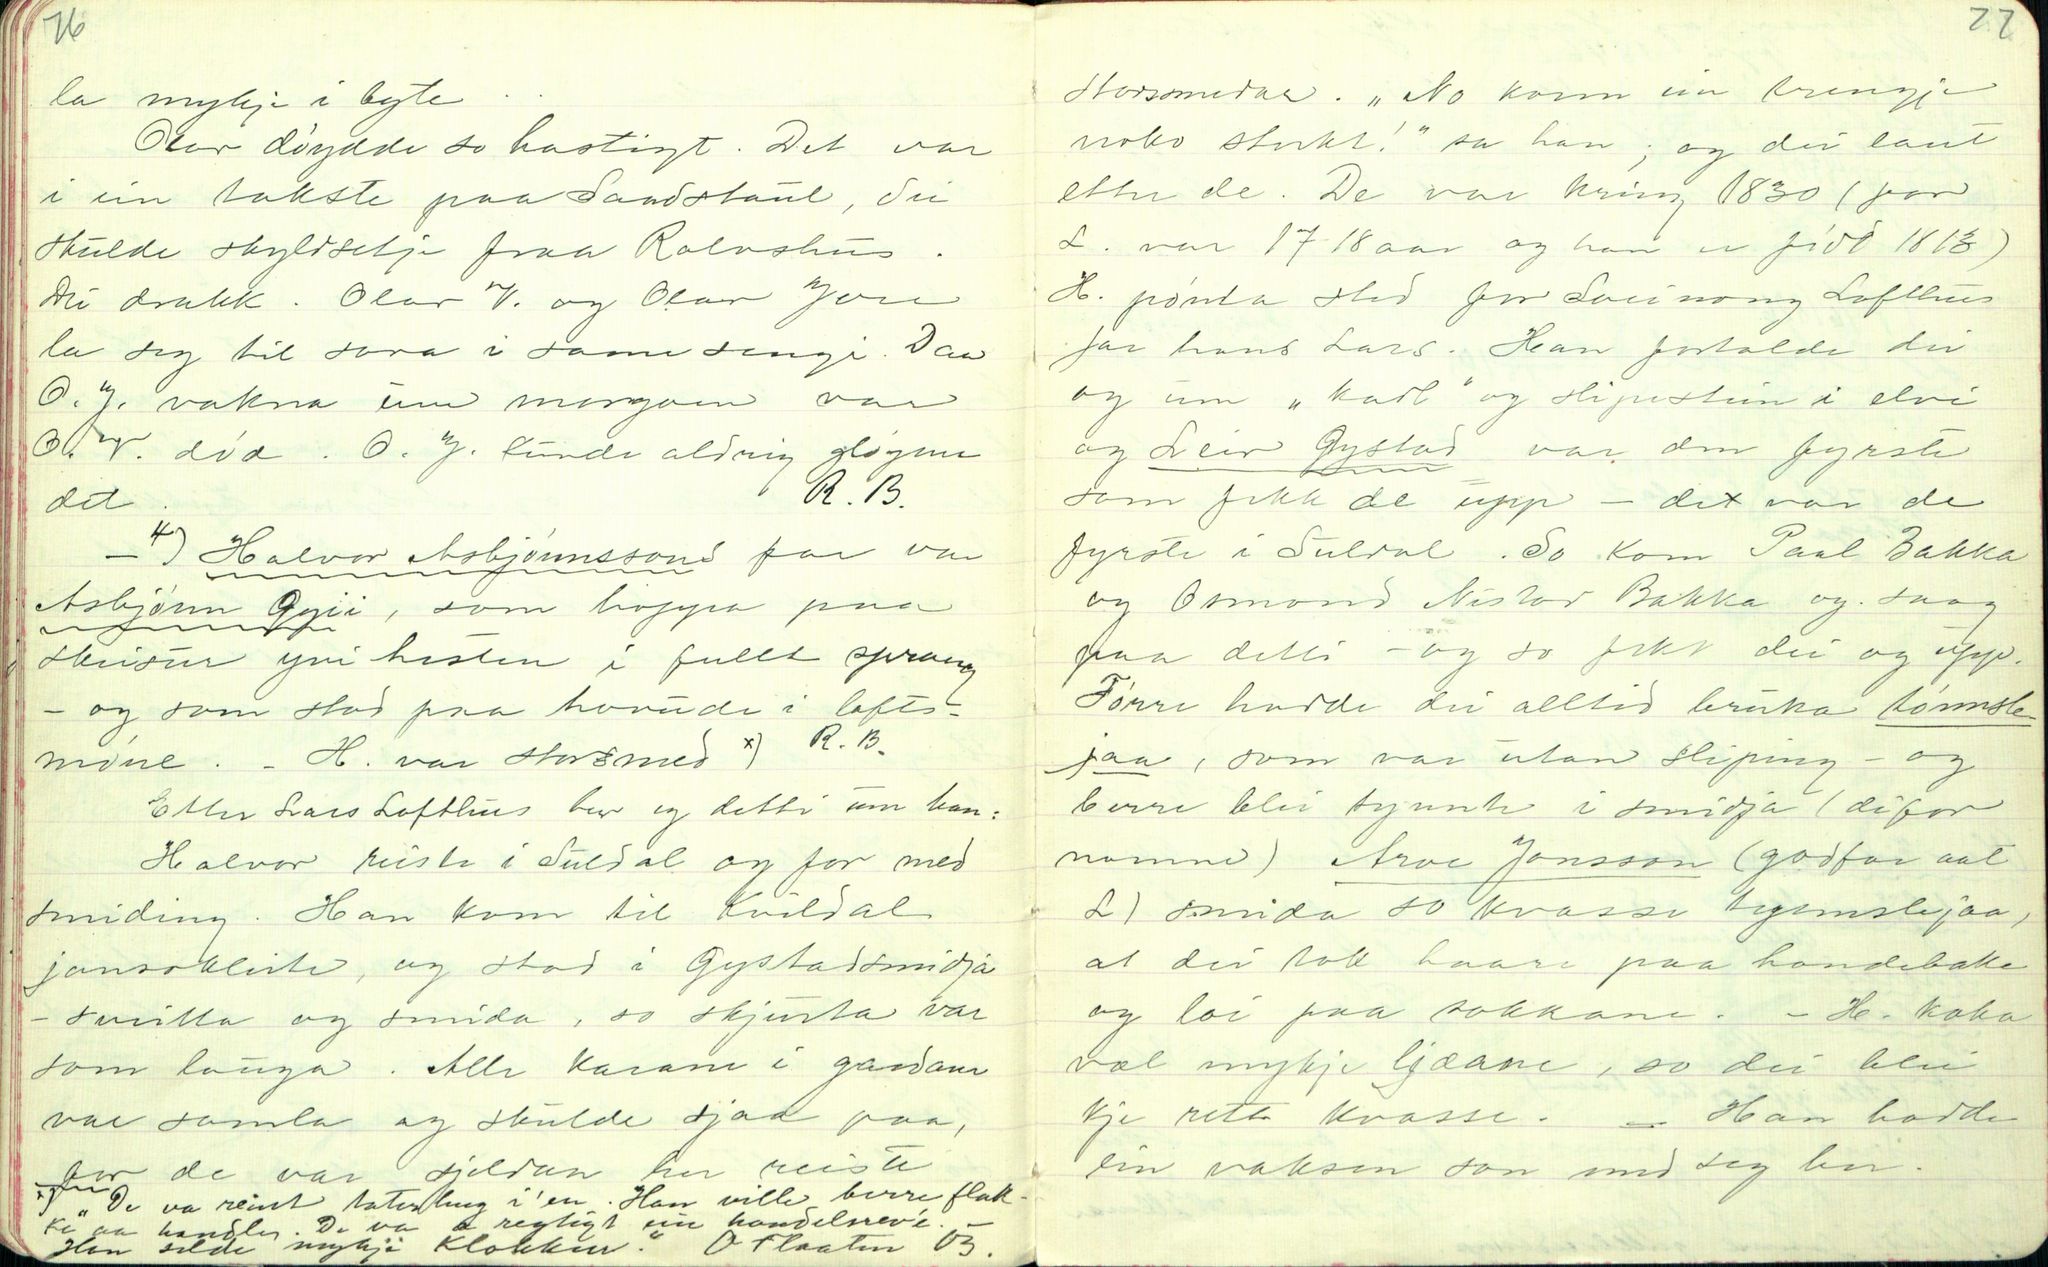 76
la mykje i byte.
Olav døydde so hastigt. Det var
i ein takste paa Sandstaul, dei
skulde skyldsetje fraa Rolvshus.
Dei drakk. Olav V. og Olav Jore
la seg til sova i same sengi. Daa
O. J. vakna um morgoen var
O. V. død. O. J. kunde aldrig gløyme
det. R. B.
— 4) Halvor Asbjørnssons far var
Asbjørn Øyii, som hoppa paa
skeisur yvi hesten i fullt sprang
— og som stod paa hovude i lofts-
møne. – H. var storsmed x) R. B.
Etter Lars Lofthus hev eg detti um han:
Halvor reiste i Suldal og for med
smiding. Han kom til Kvildal
jonsokleite, og stod i Gystadsmidja
– sveitta og smida, so skjurta var
som lauga. Alle karane i gardane
var samla og skulde sjaa paa,
for de var sjeldan her reiste
x) "De va reint taterhug i 'en. Han ville berre flak-
ke aa handle. De va a regtigt ein handelsrev'e. –
Han selde mykje klokkur." O Flaaten 03.
77
storsmedar. "No kom ein trengje
noko sterkt!" sa han; og dei laut
etter de. De var kring 1830 (for
L. var 17-18 aar og han er født 1813)
H. pønta sled for Sveinong Lofthus
far hans Lars. Han fortalde dei
og um "kadl" og slipestein i elvi
og Leiv Gystad var den fyrste
som fekk de upp – det var de
fyrste i Suldal. So kom Paal Bakka
og Osmond Nistor Bakka og saag
paa detti – og so fekk dei og upp.
Førre hadde dei alltid bruka tønnsle-
jaa, som var utan sliping – og
berre blei tynnte i smidja (difor
namne) Arve Jonsson (godfar aat
L) smida so kvasse tynnslejaa,
at dei tok haari paa handebake
og loi paa sokkane. – H. koka
vel mykje ljaane, so dei blei
kje rett kvasse. — Han hadde
ein vaksen son med seg her.